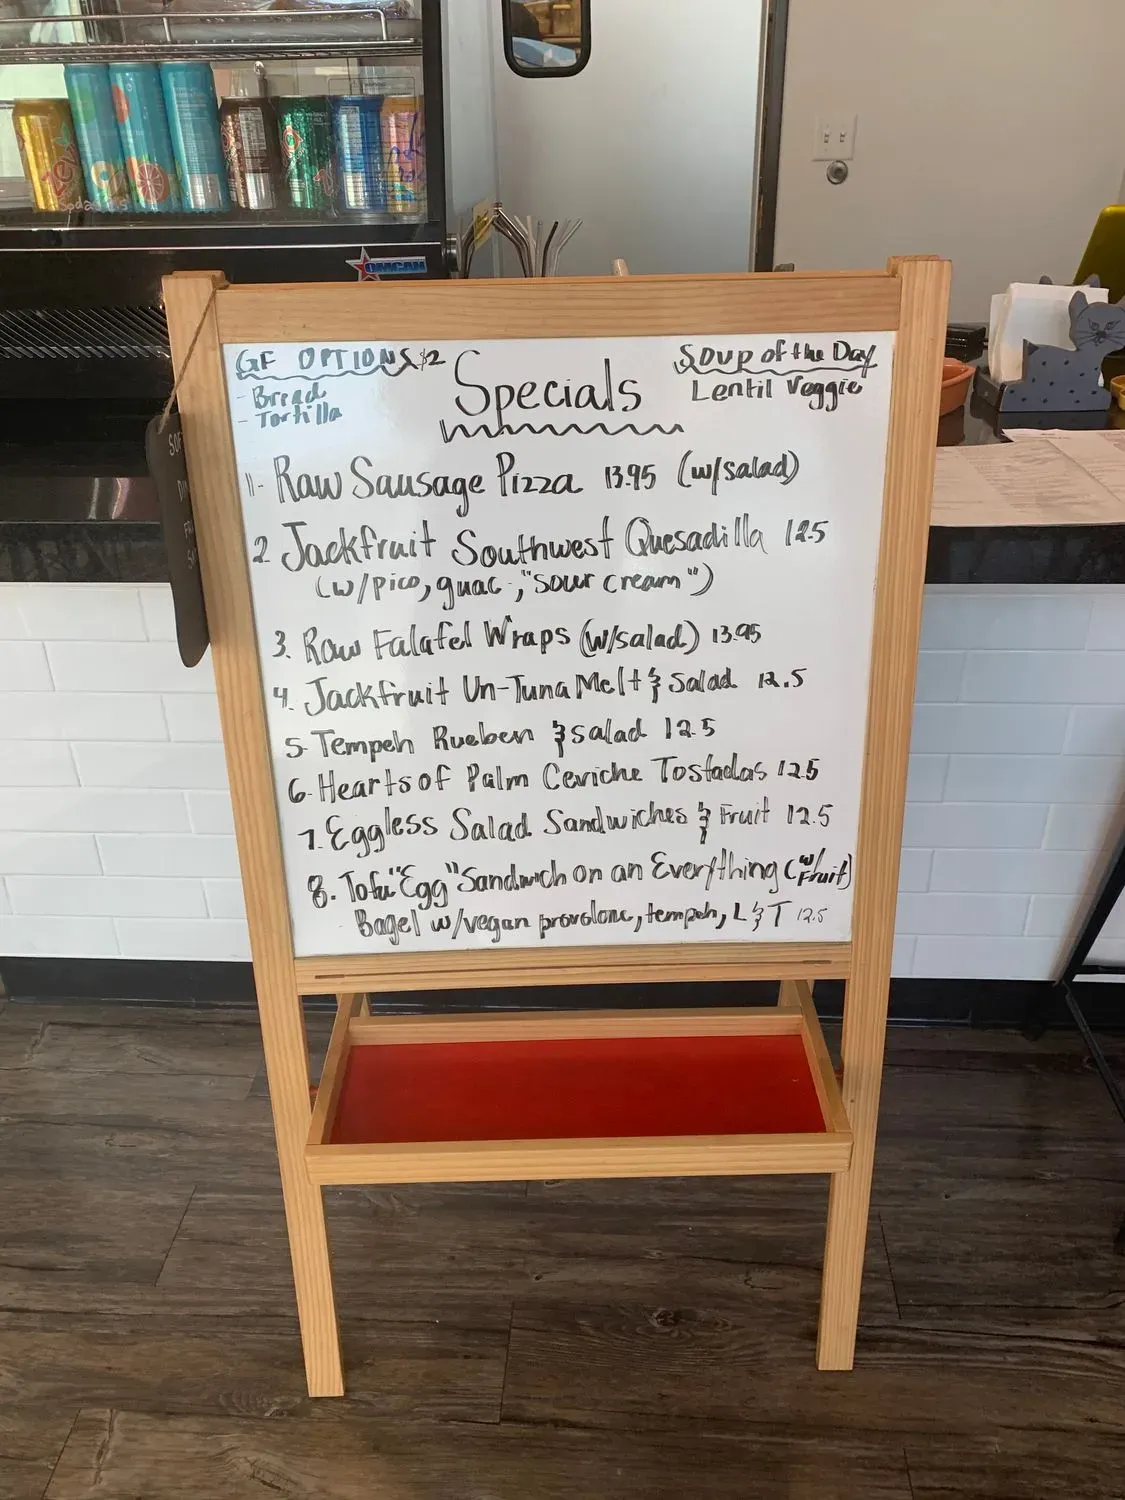 OMCAN
GF OPTIONS $2
- Bread
- Tortilla
Specials
Soup of the Day
Lentil Veggie
1- Raw Sausage Pizza 13.95 (w/salad)
2 Jackfruit Southwest Quesadilla 12.5
(w/pico, guac, "sour cream")
3. Raw Falafel Wraps (w/salad) 13.95
4. Jackfruit Un-Tuna Melt & Salad 12.5
5- Tempeh Rueben & salad 12.5
6. Hearts of Palm Ceviche Tostadas 12.5
7. Eggless Salad Sandwiches & Fruit 12.5
8. Tofu "Egg" Sandwich on an Everything (w/ Fruit)
Bagel w/vegan provolone, tempeh, L & T 12.5